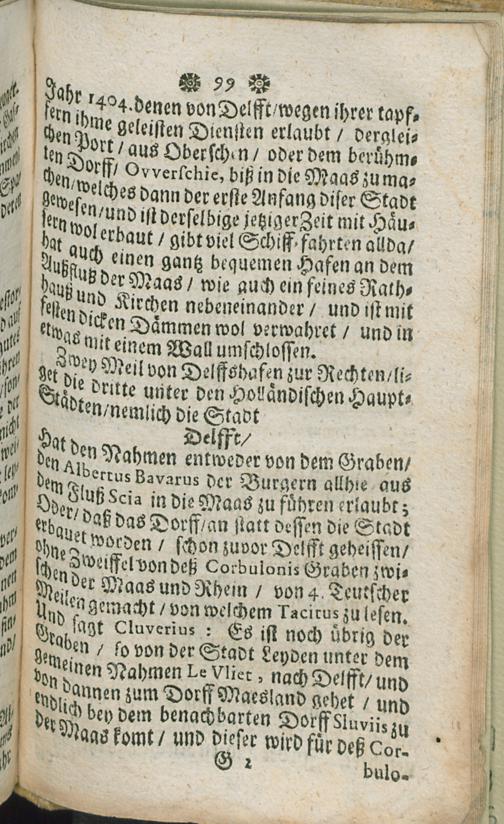 99
Jahr 1404. denen von Delfft/ wegen ihrer tapf-
fern ihme geleisten Diensten erlaubt / derglei-
chen Port / aus Oberschen / oder dem berühm-
ten Dorff/ Ovverschie, biß in die Maas zu ma-
chen/ welches dann der erste Anfang diser Stadt
gewesen/ und ist derselbige jetziger Zeit mit Häu-
sern wol erbaut / gibt viel Schiff-fahrten allda/
hat auch einen gantz bequemen Hafen an dem
Außfluß der Maas / wie auch ein feines Rath-
hauß und Kirchen nebeneinander / und ist mit
festen dicken Dämmen wol verwahret / und in
etwas mit einem Wall umschlossen.
Zwey Meil von Delffshafen zur Rechten/ li-
get die dritte unter den Holländischen Haupt-
Städten/ nemlich die Stadt
Delfft/
Hat den Nahmen entweder von dem Graben/
den Albertus Bavarus der Burgern allhie aus
dem Fluß Scia in die Maas zu führen erlaubt;
Oder/ daß das Dorff/ an statt dessen die Stadt
erbauet worden / schon zuvor Delfft geheissen/
ohne Zweiffel von deß Corbulonis Graben zwi-
schen der Maas und Rhein / von 4. Teutscher
Meilen gemacht / von welchem Tacitus zu lesen.
Und sagt Cluverius : Es ist noch übrig der
Graben / so von der Stadt Leyden unter dem
gemeinen Nahmen Le Vliet, nach Delfft/ und
von dannen zum Dorff Maesland gehet / und
endlich bey dem benachbarten Dorff Sluviis zu
der Maas komt / und dieser wird für deß Cor-
G 2
bulo-